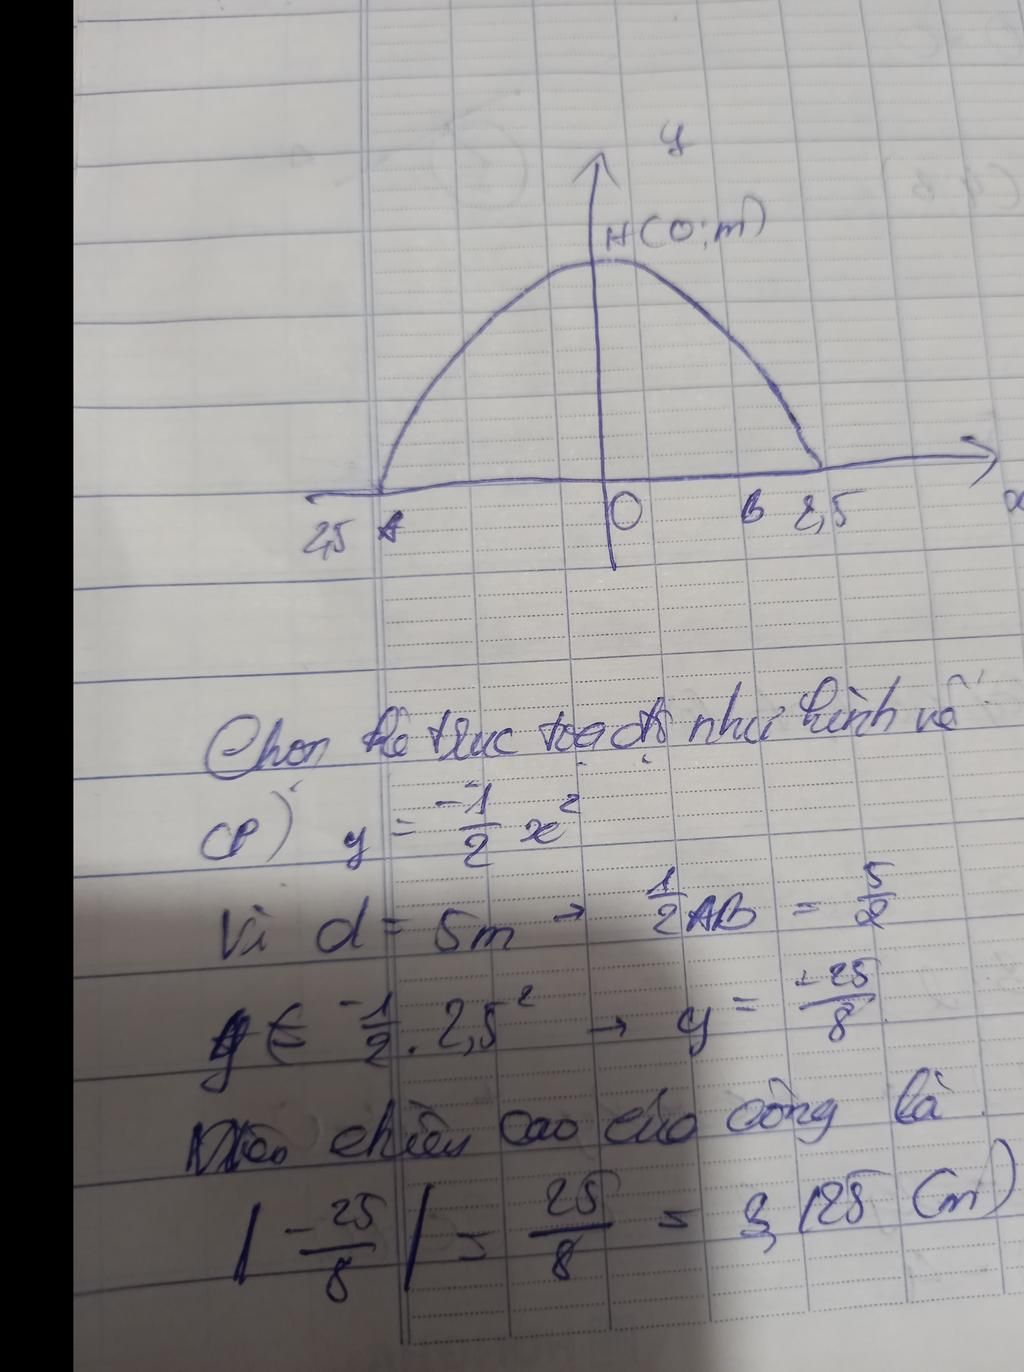 y
H(0;m)
2,5 A O B 2,5 x
Chọn hệ trục toạ độ như hình vẽ
(P) y = -1/2 x²
Vì d = 5m → 1/2 AB = 5/2
y = -1/2 . 2,5² → y = -25/8
chiều cao của cổng là
|-25/8| = 25/8 = 3,125 (m)